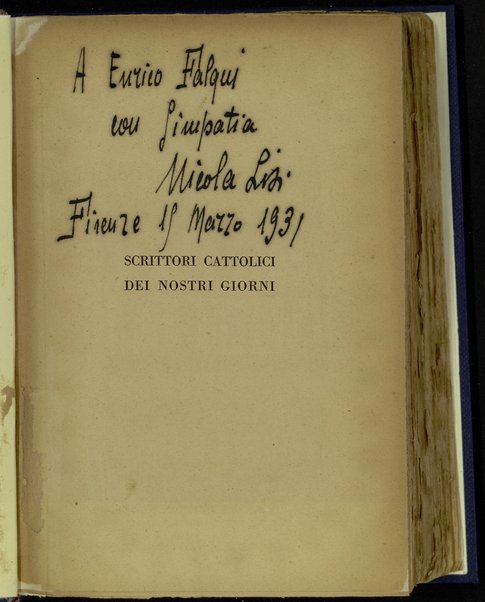 A Enrico Falqui
con Simpatia
Nicola Lisi
Firenze 15 Marzo 1931
SCRITTORI CATTOLICI
DEI NOSTRI GIORNI